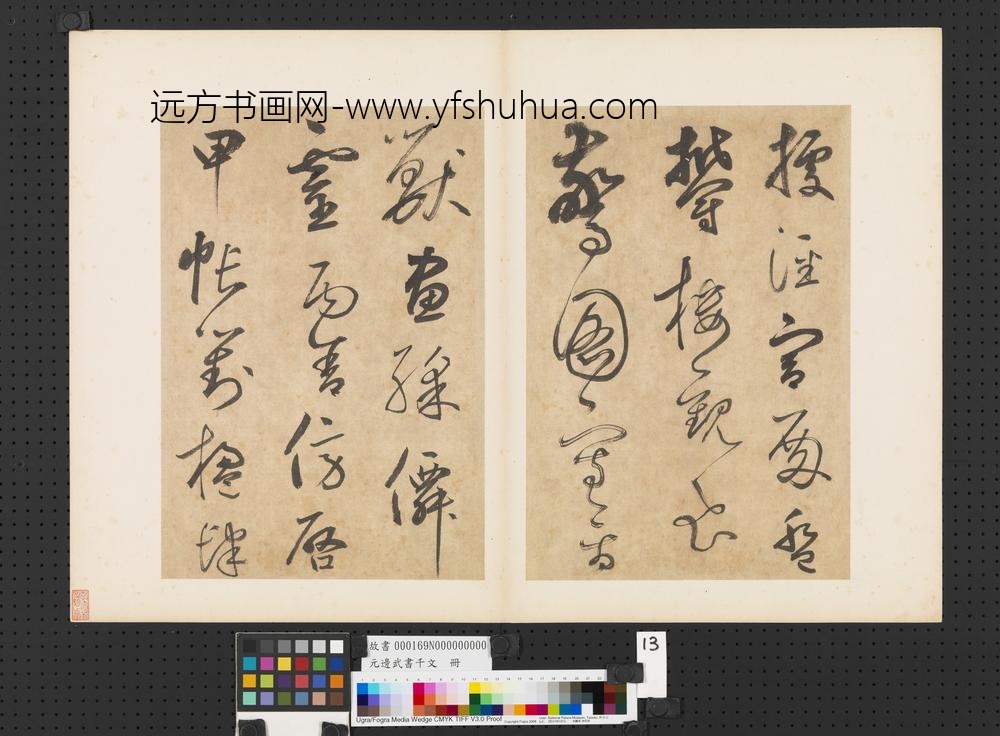 远方书画网-www.yfshuhua.com
據涇宮殿盤
欝樓觀飛
驚圖寫禽
獸畫綵僊
靈丙舍傍啓
甲帳對楹肆
故書 000169N000000000
元邊武書千文 冊
13
Ugra/Fogra Media Wedge CMYK TIFF V3.0 Proof